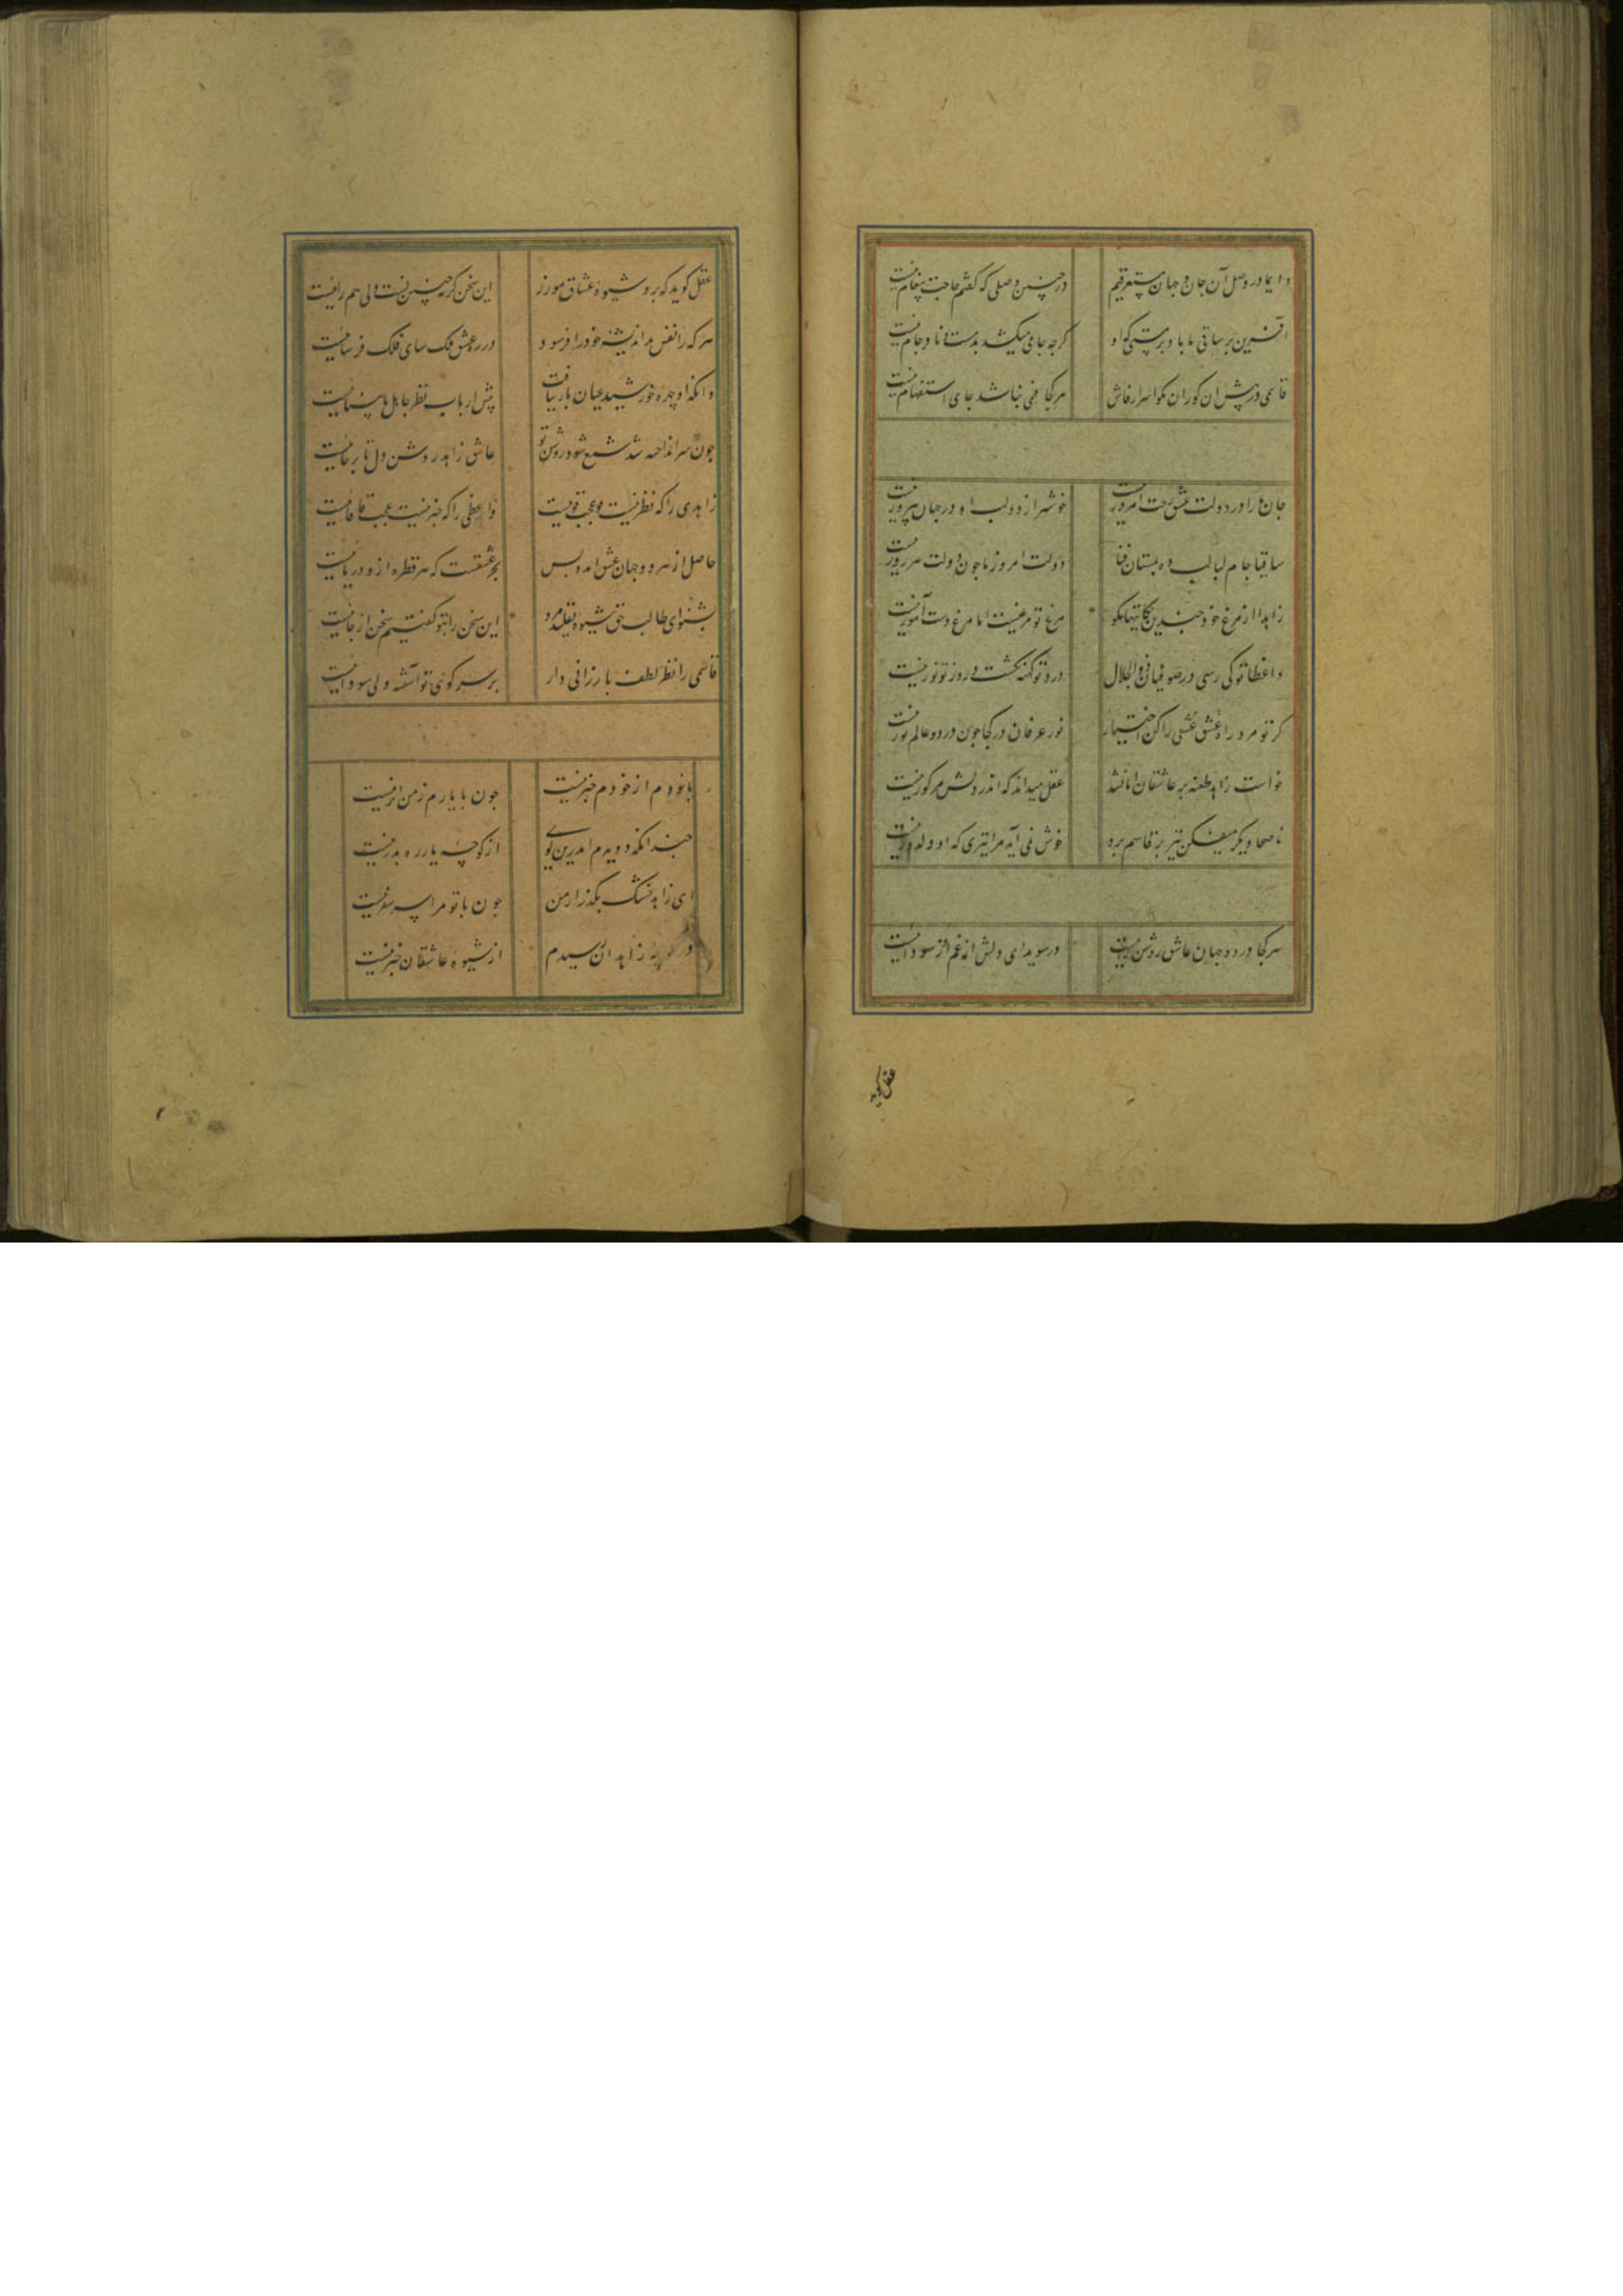 دایما در وصل آن جان و جهان مستغرقیم در چنین وصلی که گفتم حاجت پیغام نیست
آفرین بر ساقی ما باد و برمستی که او کرچه جامی میکشد بدمست و نا در جام نیست
قاسمی در پیش ان کوران مکو اسرار فاش هر کجا فهمی نباشد جای استفهام نیست
جان ما را در دولت عشق تحت امروز نیست خوشتر از دولت او در جهان پیروز نیست
ساقیا جام لبالب ده بمستان فنا دولت امروز ما چون دولت هر روز نیست
زاهدا از مرغ خود چندین حکایتها مکو مرغ تو مرغیست اما مرغ دست آموز نیست
واعظا تو کی رسی در صوفیان ذوالجلال درد تو کهنه کشت و روز تو نوروز نیست
کر تو مرد راه عشقی عشق را کن اختیار نور عرفان در کجا چون در دو عالم نور نیست
خواست زاهد طعنه بر عاشقان اما نشد عقل میداند که اندر دلش مرکوز نیست
ناصحا دیکر میفکن تیر بر قاسم برو خوش نمی آید مرا تیری که او دلدوز نیست
هر کجا در دو جهان عاشق روشن رایست در سویدای دلش از غم او سوداییست
عقل کوید
عقل کوید که برو شیوه عشاق مورز این سخن کرچه چنین است ولی هم را نیست
هر که را نفس بد اندیشه خود را فرسود در ره عشق فلک سای فلک فرساییست
وانکه او چهره خورشید عیان باز نیافت پیش ارباب نظر جاهل نابیناییست
چون سر انداخته شد شمع شود روشن تو عاشق زاهد روشن دل تا بر جاییست
زاهدی را که نظر نیست عجب قومیست واعظی را که خبر نیست عجب قاقاییست
حاصل از هر دو جهان عشق امد و بس بحر عشقست که هر قطره از و دریاییست
بشنو ای طالب حق شیوه تقلید مرو این سخن را بتو کفتیم سخن از جاییست
قاسمی را نظر لطف بارزانی دار بر سر کوی تو آشفته ولی سوداییست
با خودم از خودم خبر نیست چون با یارم ز من اثر نیست
چندانکه دویدم اندرین کوی از کوچه یار ره بدر نیست
ای زاهد خشک بکذر از من چون با تو مرا سر سفر نیست
زاهدان رسیدم از شیوه عاشقان خبر نیست